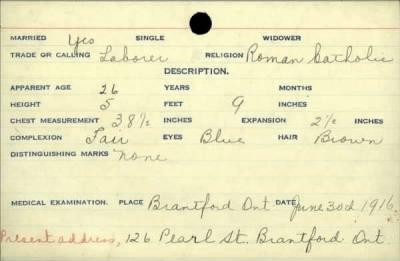 MARRIED Yes SINGLE WIDOWER
TRADE OR CALLING Laborer RELIGION Roman Catholic
DESCRIPTION.
APPARENT AGE 26 YEARS MONTHS
HEIGHT 5 FEET 9 INCHES
CHEST MEASUREMENT 38½ INCHES EXPANSION 2½ INCHES
COMPLEXION Fair EYES Blue HAIR Brown
DISTINGUISHING MARKS None
MEDICAL EXAMINATION. PLACE Brantford Ont DATE June 30d 1916
Present address, 126 Pearl St. Brantford Ont.